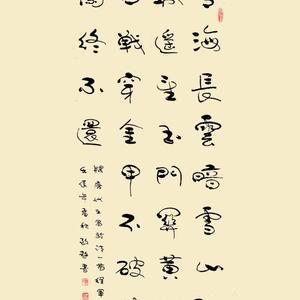 海長雲暗雪山
城遥望玉門關黄
戰穿金甲不破
蘭終不還
唐代王昌齡詩一首從軍
書